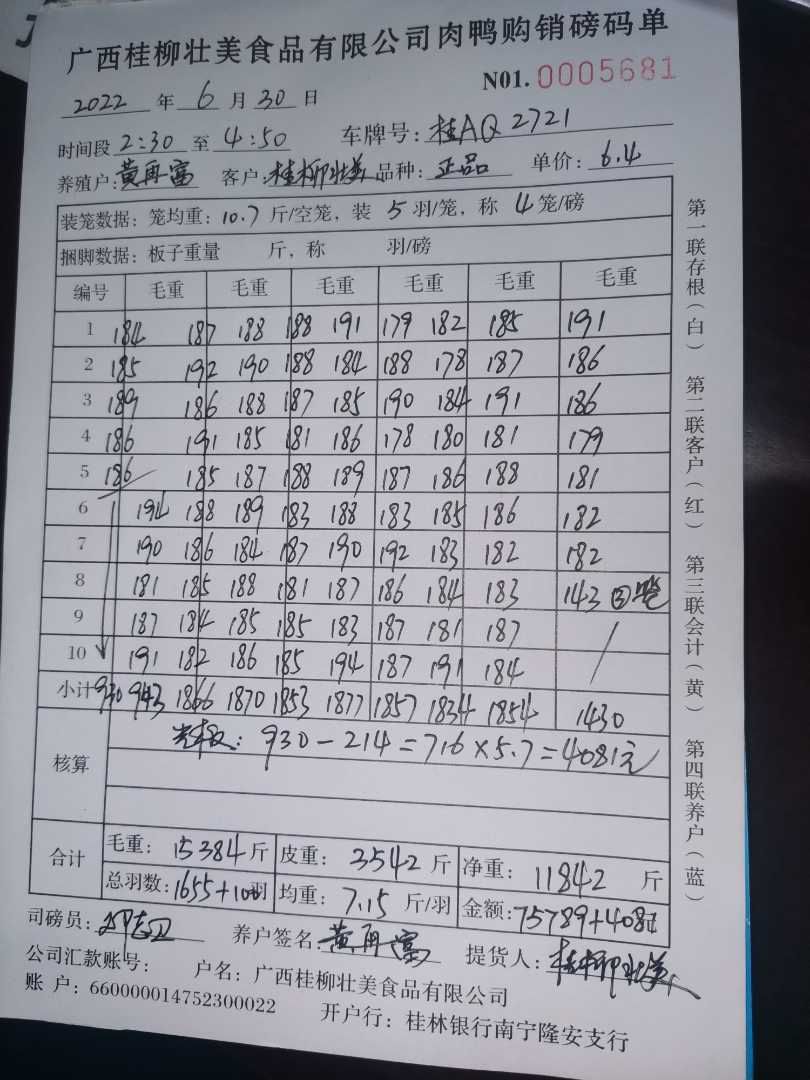 广西桂柳壮美食品有限公司肉鸭购销磅码单
N01. 0005681
2022 年 6 月 30 日
时间段 2:30 至 4:50 车牌号: 桂AQ2721
养殖户: 黄再富 客户: 桂柳壮美 品种: 正品 单价: 6.4
装笼数据: 笼均重: 10.7 斤/空笼, 装 5 羽/笼, 称 4 笼/磅
捆脚数据: 板子重量 斤, 称 羽/磅
编号 毛重 毛重 毛重 毛重 毛重 毛重
1 184 187 188 188 191 179 182 185 191
2 185 192 190 188 184 188 178 187 186
3 189 186 188 187 185 190 184 191 186
4 186 191 185 181 186 178 180 181 179
5 186 185 187 188 189 187 186 188 181
6 194 188 189 183 188 183 185 186 182
7 190 186 184 187 190 192 183 182 182
8 181 185 188 181 187 186 184 183 143
9 187 184 185 185 183 187 181 187 /
10 191 182 186 185 194 187 191 184
小计 930 943 1866 1870 1853 1877 1857 1834 1854 1430
核算
930-214=716×5.7=4081元
合计
毛重: 15384 斤 皮重: 3542 斤 净重: 11842 斤
总羽数: 1655+100羽 均重: 7.15 斤/羽 金额: 75789+4081
司磅员: 养户签名: 黄再富 提货人: 桂柳壮美
公司汇款账号: 户名: 广西桂柳壮美食品有限公司
账 户: 660000014752300022 开户行: 桂林银行南宁隆安支行
第一联存根(白) 第二联客户(红) 第三联会计(黄) 第四联养户(蓝)